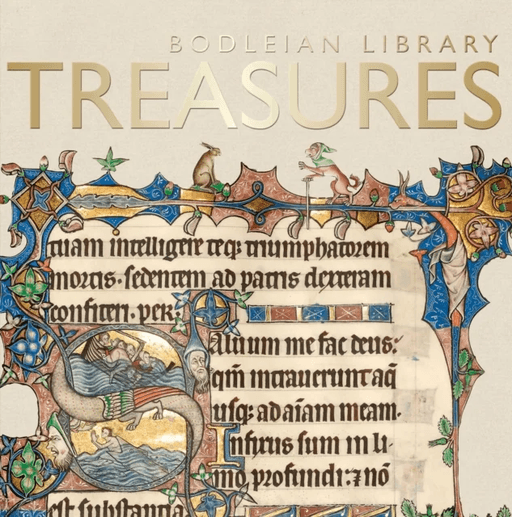 BODLEIAN LIBRARY
TREASURES
tuam intelligere teqꝫ triumphatorem
mortis· sedentem ad patris dexteram
confiteri· per·
Aluum me fac deus:
qm̄ intrauerunt aq̄
usqꝫ ad aīam meam·
Infixus sum in li-
mo profundi: ⁊ nō
est substantia